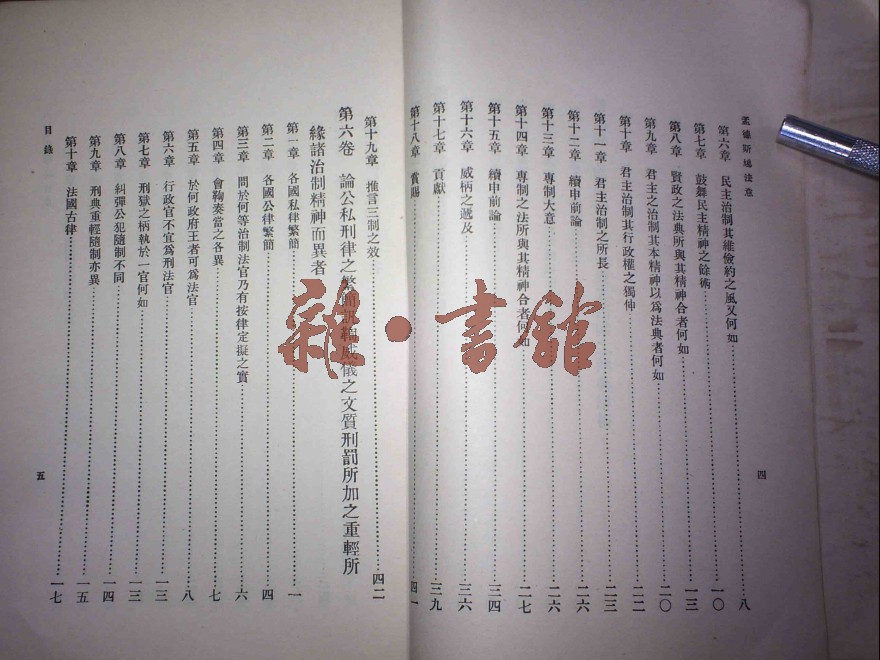 孟德斯鳩法意
第六章 民主治制其維儉約之風又何如 八
第七章 鼓舞民主精神之餘術 一〇
第八章 賢政之法典所與其精神合者何如 一三
第九章 君主之治制其本精神以爲法典者何如 二〇
第十章 君主治制其行政權之獨伸 二二
第十一章 君主治制之所長 二三
第十二章 續申前論 二六
第十三章 專制大意 二六
第十四章 專制之法所與其精神合者何如 二七
第十五章 續申前論 三四
第十六章 威柄之遞及 三六
第十七章 貢獻 三九
第十八章 賞賜 四一
四
第十九章 推言三制之效 四二
第六卷 論公私刑律之繁簡訊鞫威儀之文質刑罰所加之重輕所
緣諸治制精神而異者
第一章 各國私律繁簡 一
第二章 各國公律繁簡 四
第三章 問於何等治制法官乃有按律定擬之實 六
第四章 會鞫奏當之各異 七
第五章 於何政府王者可爲法官 八
第六章 行政官不宜爲刑法官 一三
第七章 刑獄之柄執於一官何如 一三
第八章 糾彈公犯隨制不同 一四
第九章 刑典重輕隨制亦異 一五
第十章 法國古律 一七
目錄
五
雜·書館